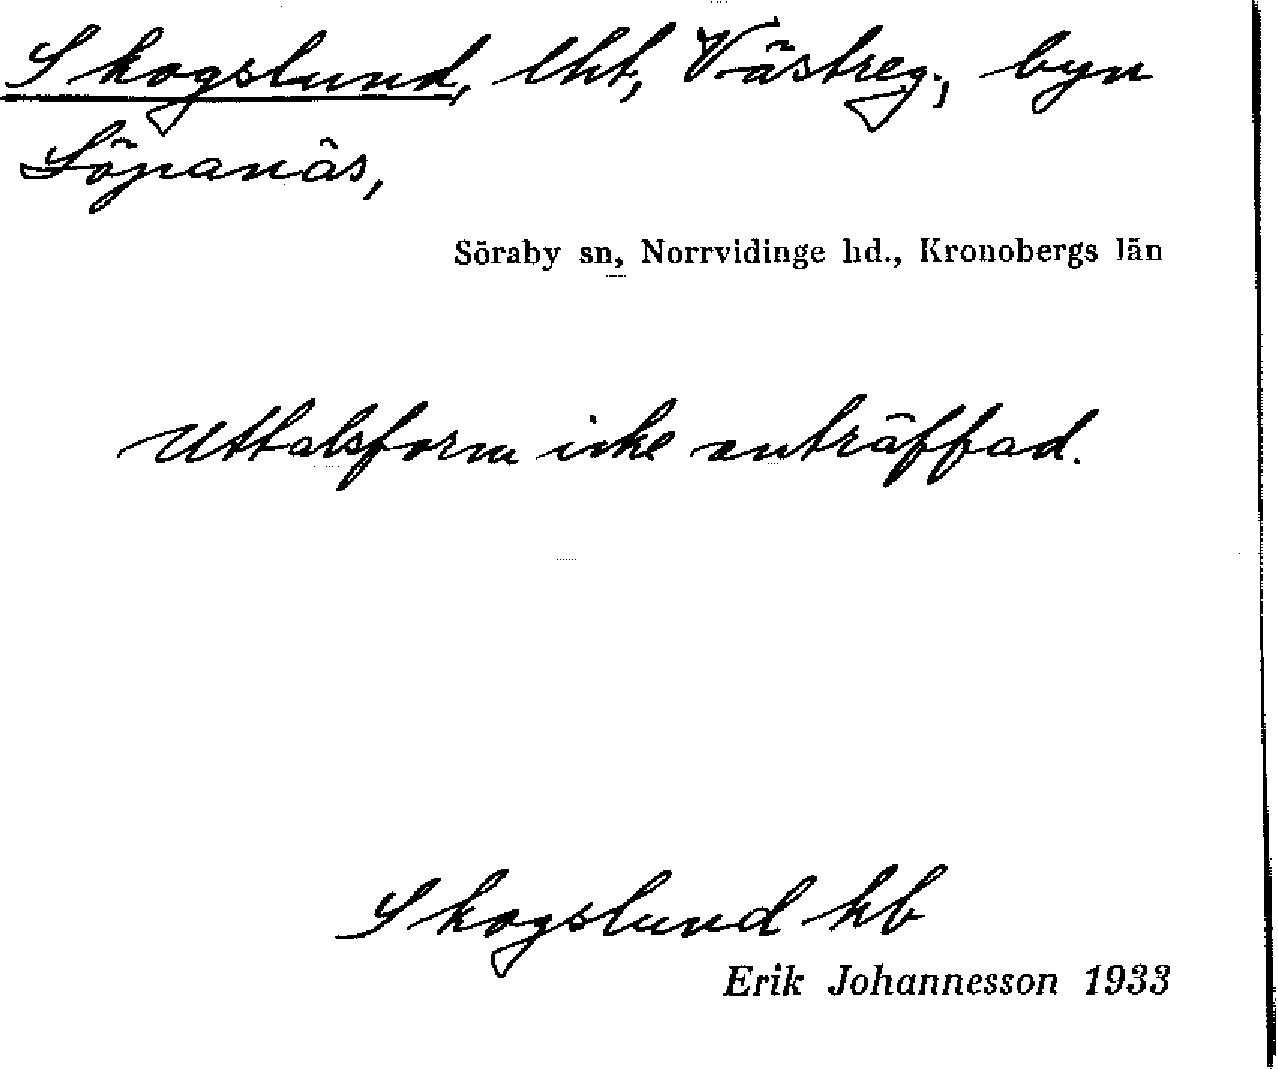 Skogslund, lht, Västreg., byn
Löpanäs,
Söraby sn, Norrvidinge hd., Kronobergs län
Uttalsform icke anträffad.
Skogslund kb
Erik Johannesson 1933